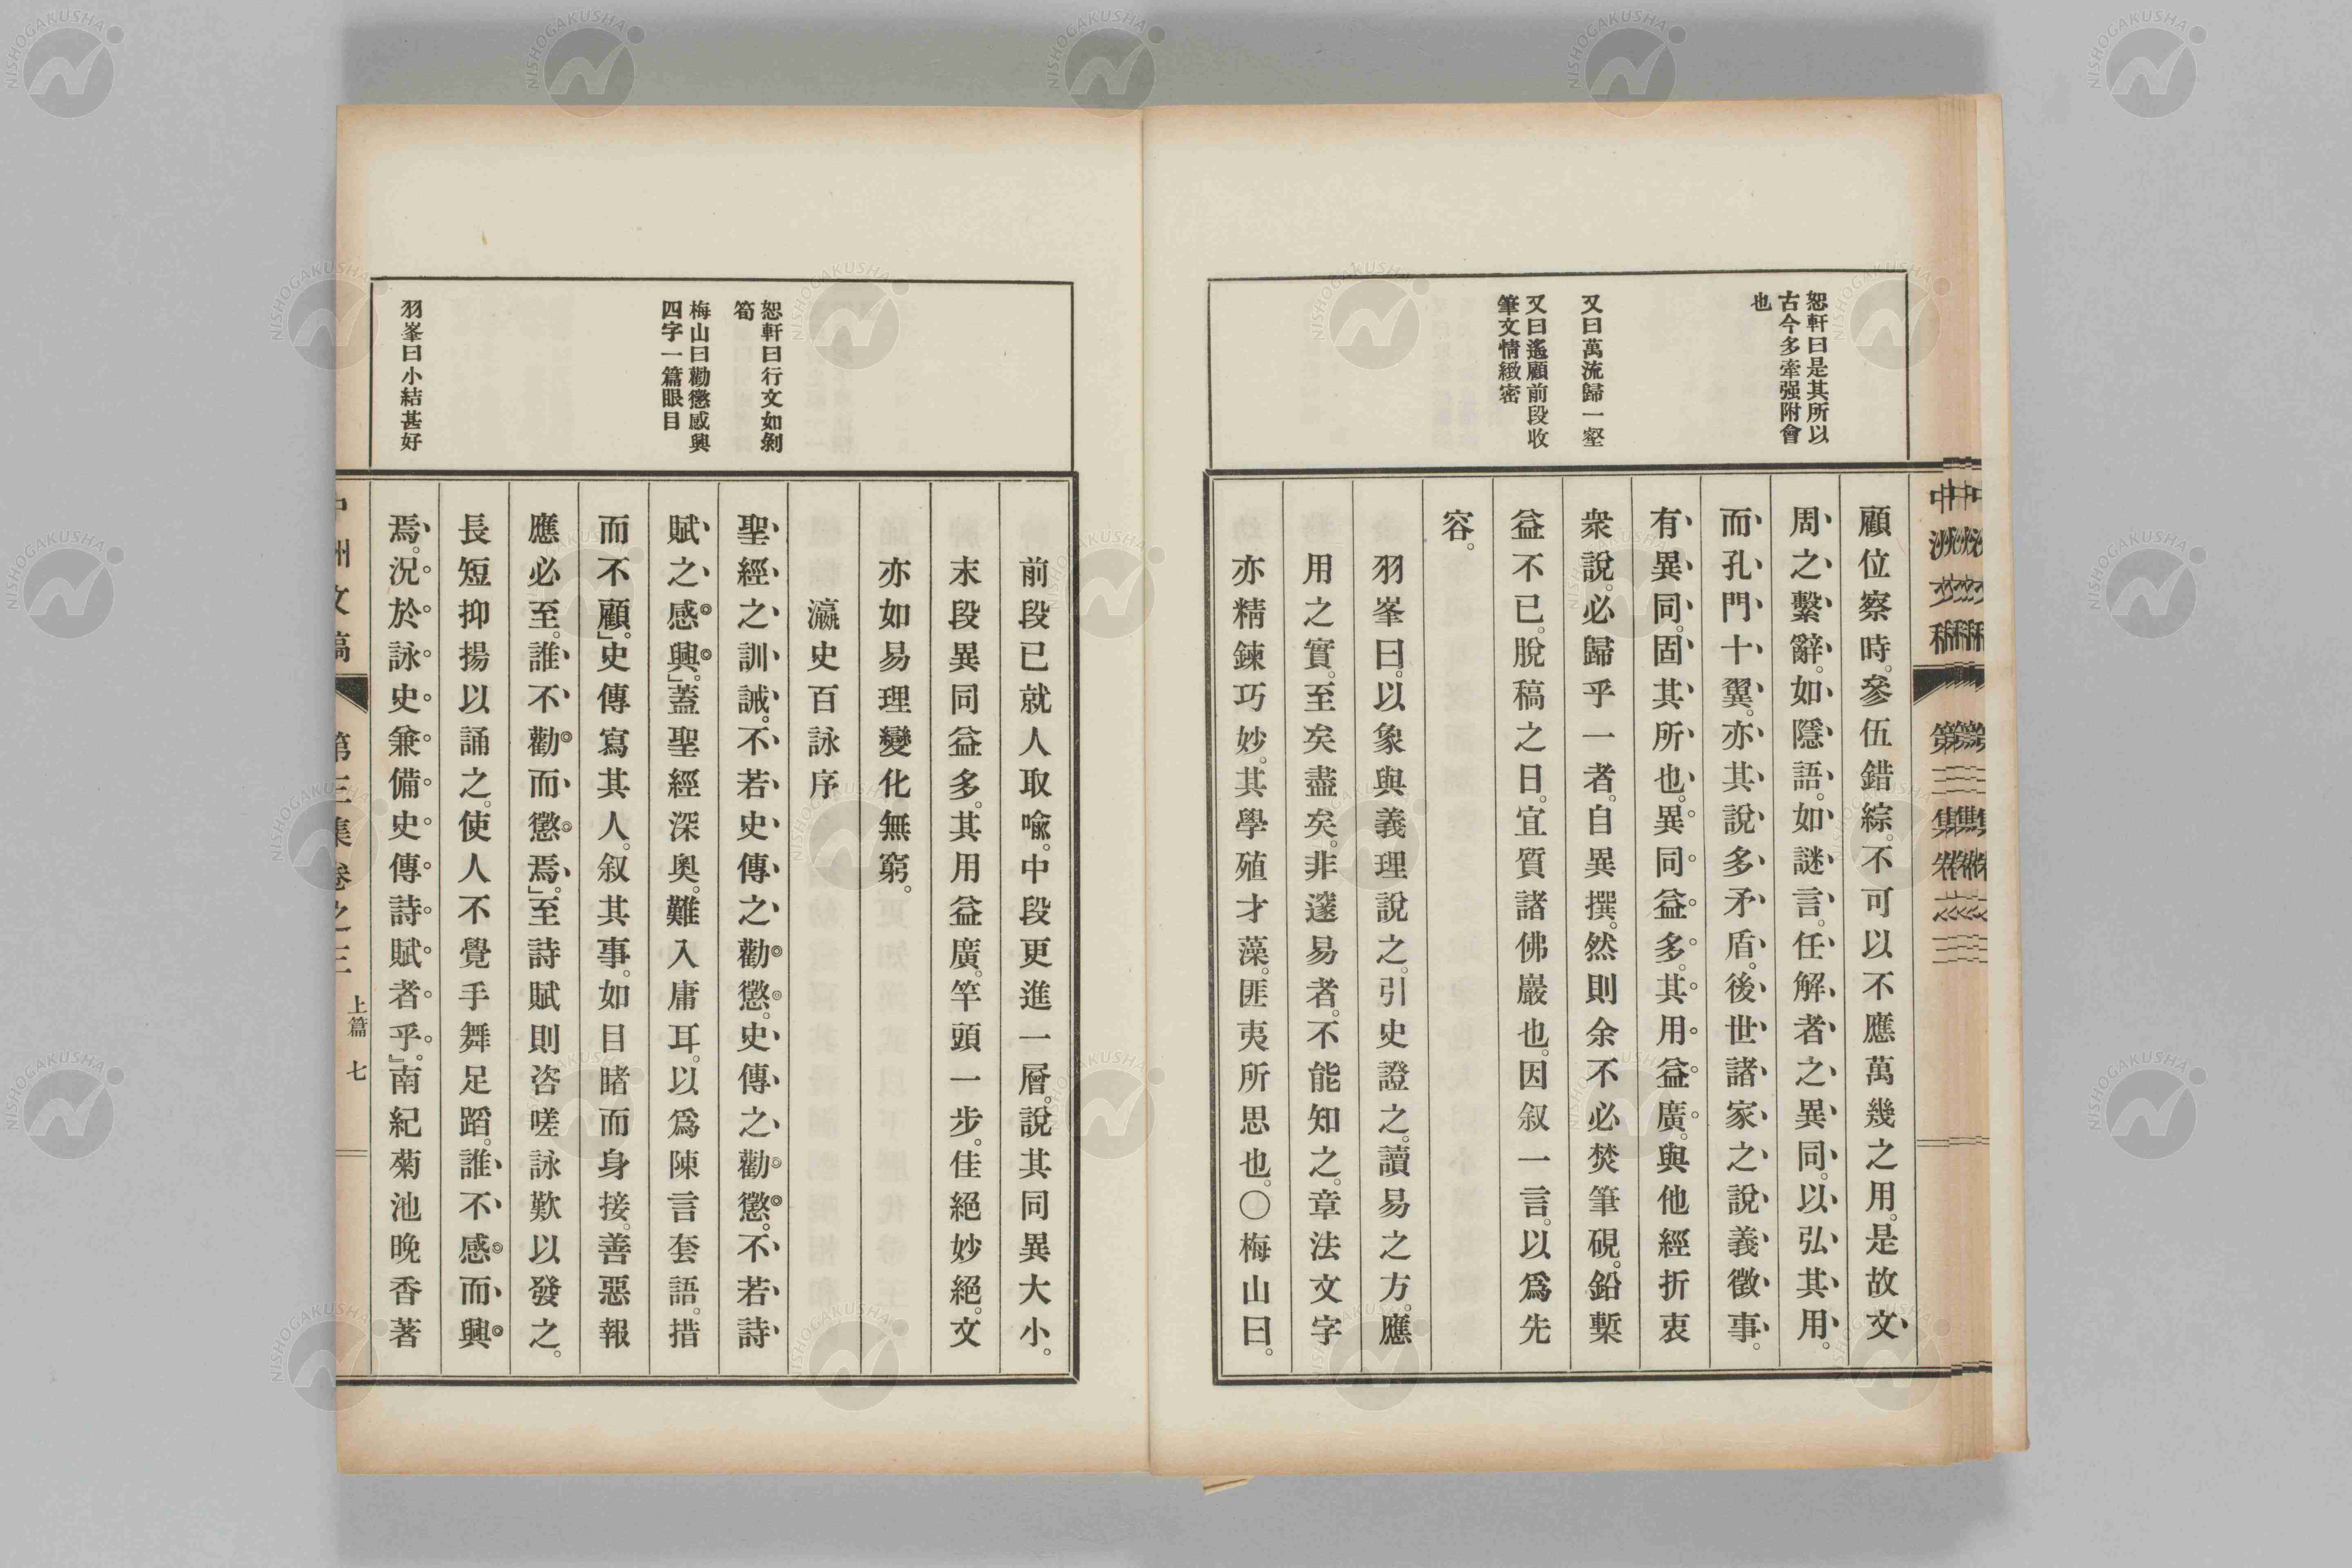 恕軒曰是其所以
古今多牽强附會
也
又曰萬流歸一壑
又曰遙顧前段收
筆文情緻密
顧位察時。參伍錯綜。不可以不應萬幾之用。是故文
周之繫辭。如隱語。如謎言。任解者之異同。以弘其用。
而孔門十翼。亦其說多矛盾。後世諸家之說義徵事。
有異同。固其所也。異同益多。其用益廣。與他經折衷
衆說。必歸乎一者。自異撰。然則余不必焚筆硯。鉛槧
益不已。脫稿之日。宜質諸佛巖也。因叙一言。以爲先
容。
羽峯曰。以象與義理說之。引史證之。讀易之方。應
用之實。至矣盡矣。非邃易者。不能知之。章法文字
亦精鍊巧妙。其學殖才藻。匪夷所思也。〇梅山曰。
恕軒曰行文如剝
筍
梅山曰勸懲感興
四字一篇眼目
羽峯曰小結甚好
前段已就人取喩。中段更進一層。說其同異大小。
末段異同益多。其用益廣。竿頭一步。佳絕妙絕。文
亦如易理變化無窮。
瀛史百詠序
聖經之訓誡。不若史傳之勸懲。史傳之勸懲。不若詩
賦之感興。」蓋聖經深奧。難入庸耳。以爲陳言套語。措
而不顧。」史傳寫其人。叙其事。如目睹而身接。善惡報
應必至。誰不勸而懲焉。」至詩賦則咨嗟詠歎以發之。
長短抑揚以誦之。使人不覺手舞足蹈。誰不感而興
焉。況於詠史兼備史傳詩賦者乎。」南紀菊池晚香著
中洲文稿 第三集卷之三 上篇 七
NISHOGAKUSHA